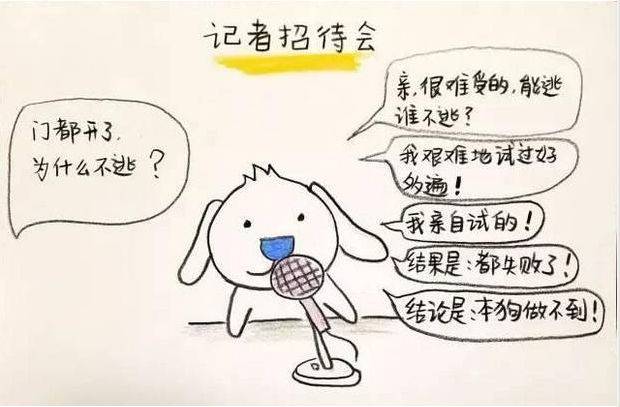 记者招待会
门都开了,
为什么不逃?
亲,很难受的,能逃
谁不逃?
我艰难地试过好
多遍!
我亲自试的!
结果是:都失败了!
结论是:本狗做不到!